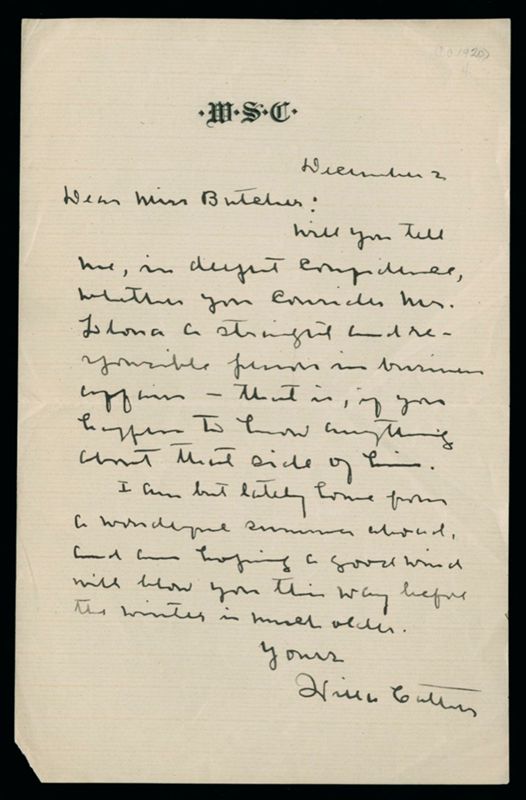 (? 1920)
·W·S·C·
December 2
Dear Miss Butcher:
Will you tell
me, in deepest confidence,
whether you consider Mr.
a straight and re-
sponsible person in business
affairs — that is, if you
happen to know anything
about that side of him.
I am but lately home from
a wonderful summer abroad,
and am hoping a good wind
will blow you this way before
the winter is much older.
Yours
Willa Cather